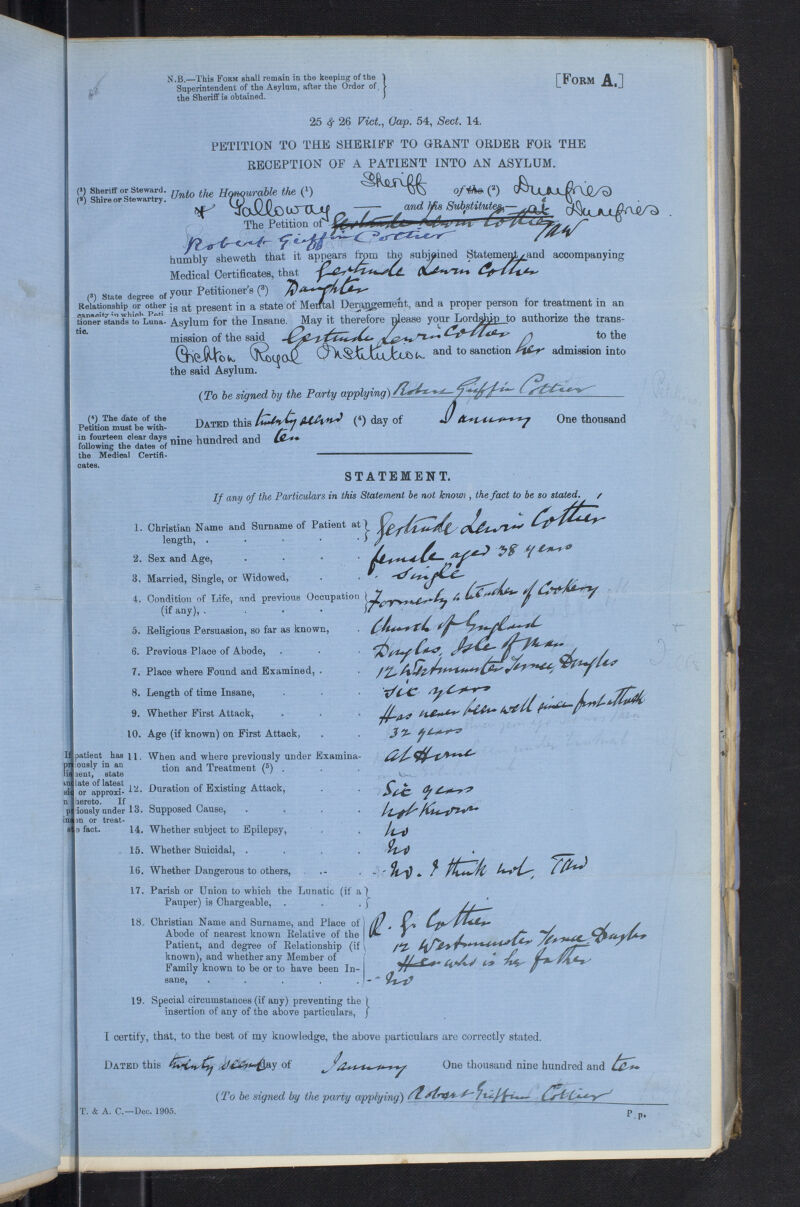 N.B.—This Form shall remain in the keeping of the
Superintendent of the Asylum, after the Order of
the Sheriff is obtained.
[Form A.]
25 & 26 Vict., Cap. 54, Sect. 14.
PETITION TO THE SHERIFF TO GRANT ORDER FOR THE
RECEPTION OF A PATIENT INTO AN ASYLUM.
(1) Sheriff or Steward.
(2) Shire or Stewartry.
Unto the Honourable the (1) Sheriff of the (2) Dumfries
& Galloway — and his Substitutes — at Dumfries.
The Petition of Gertrude Lewin Cottier TAW
Robert Griffin Cottier
humbly sheweth that it appears from the subjoined Statement and accompanying
Medical Certificates, that Gertrude Lewin Cottier
(3) State degree of
Relationship or other
capacity in which Peti
tioner stands to Luna-
tic.
your Petitioner's (3) Daughter
is at present in a state of Mental Derangement, and a proper person for treatment in an
Asylum for the Insane. May it therefore please your Lordship to authorize the trans-
mission of the said Gertrude Lewin Cottier to the
Crichton Royal Institution and to sanction her admission into
the said Asylum.
(To be signed by the Party applying) Robert Griffin Cottier
(4) The date of the
Petition must be with-
in fourteen clear days
following the dates of
the Medical Certifi-
cates.
Dated this twenty second (4) day of January One thousand
nine hundred and ten
STATEMENT.
If any of the Particulars in this Statement be not known, the fact to be so stated.
1. Christian Name and Surname of Patient at
length, . . . . . Gertrude Lewin Cottier
2. Sex and Age, . . . . female aged 38 years
3. Married, Single, or Widowed, . . . Single
4. Condition of Life, and previous Occupation
(if any), . . . . . Formerly a teacher of Cookery
5. Religious Persuasion, so far as known, . Church of England
6. Previous Place of Abode, . . . Douglas, Isle of Man
7. Place where Found and Examined, . . 12 Westminster Terrace, Douglas
8. Length of time Insane, . . . Six years
9. Whether First Attack, . . . Has never been well since first attack
10. Age (if known) on First Attack, . . 32 years
If patient has
previously in an
11. When and where previously under Examina-
tion and Treatment (5) . . . At Home
12. Duration of Existing Attack, . . Six years
13. Supposed Cause, . . . . Not Known
14. Whether subject to Epilepsy, . . No
15. Whether Suicidal, . . . . No
16. Whether Dangerous to others, . . No. I think not, TAW
17. Parish or Union to which the Lunatic (if a
Pauper) is Chargeable, . . .
18. Christian Name and Surname, and Place of
Abode of nearest known Relative of the
Patient, and degree of Relationship (if
known), and whether any Member of
Family known to be or to have been In-
sane, . . . . . .
R. G. Cottier
12 Westminster Terrace Douglas
Her who is her father
No
19. Special circumstances (if any) preventing the
insertion of any of the above particulars,
I certify, that, to the best of my knowledge, the above particulars are correctly stated.
Dated this twenty second day of January One thousand nine hundred and ten
(To be signed by the party applying) Robert Griffin Cottier
T. & A. C.—Dec. 1905.
P.p.